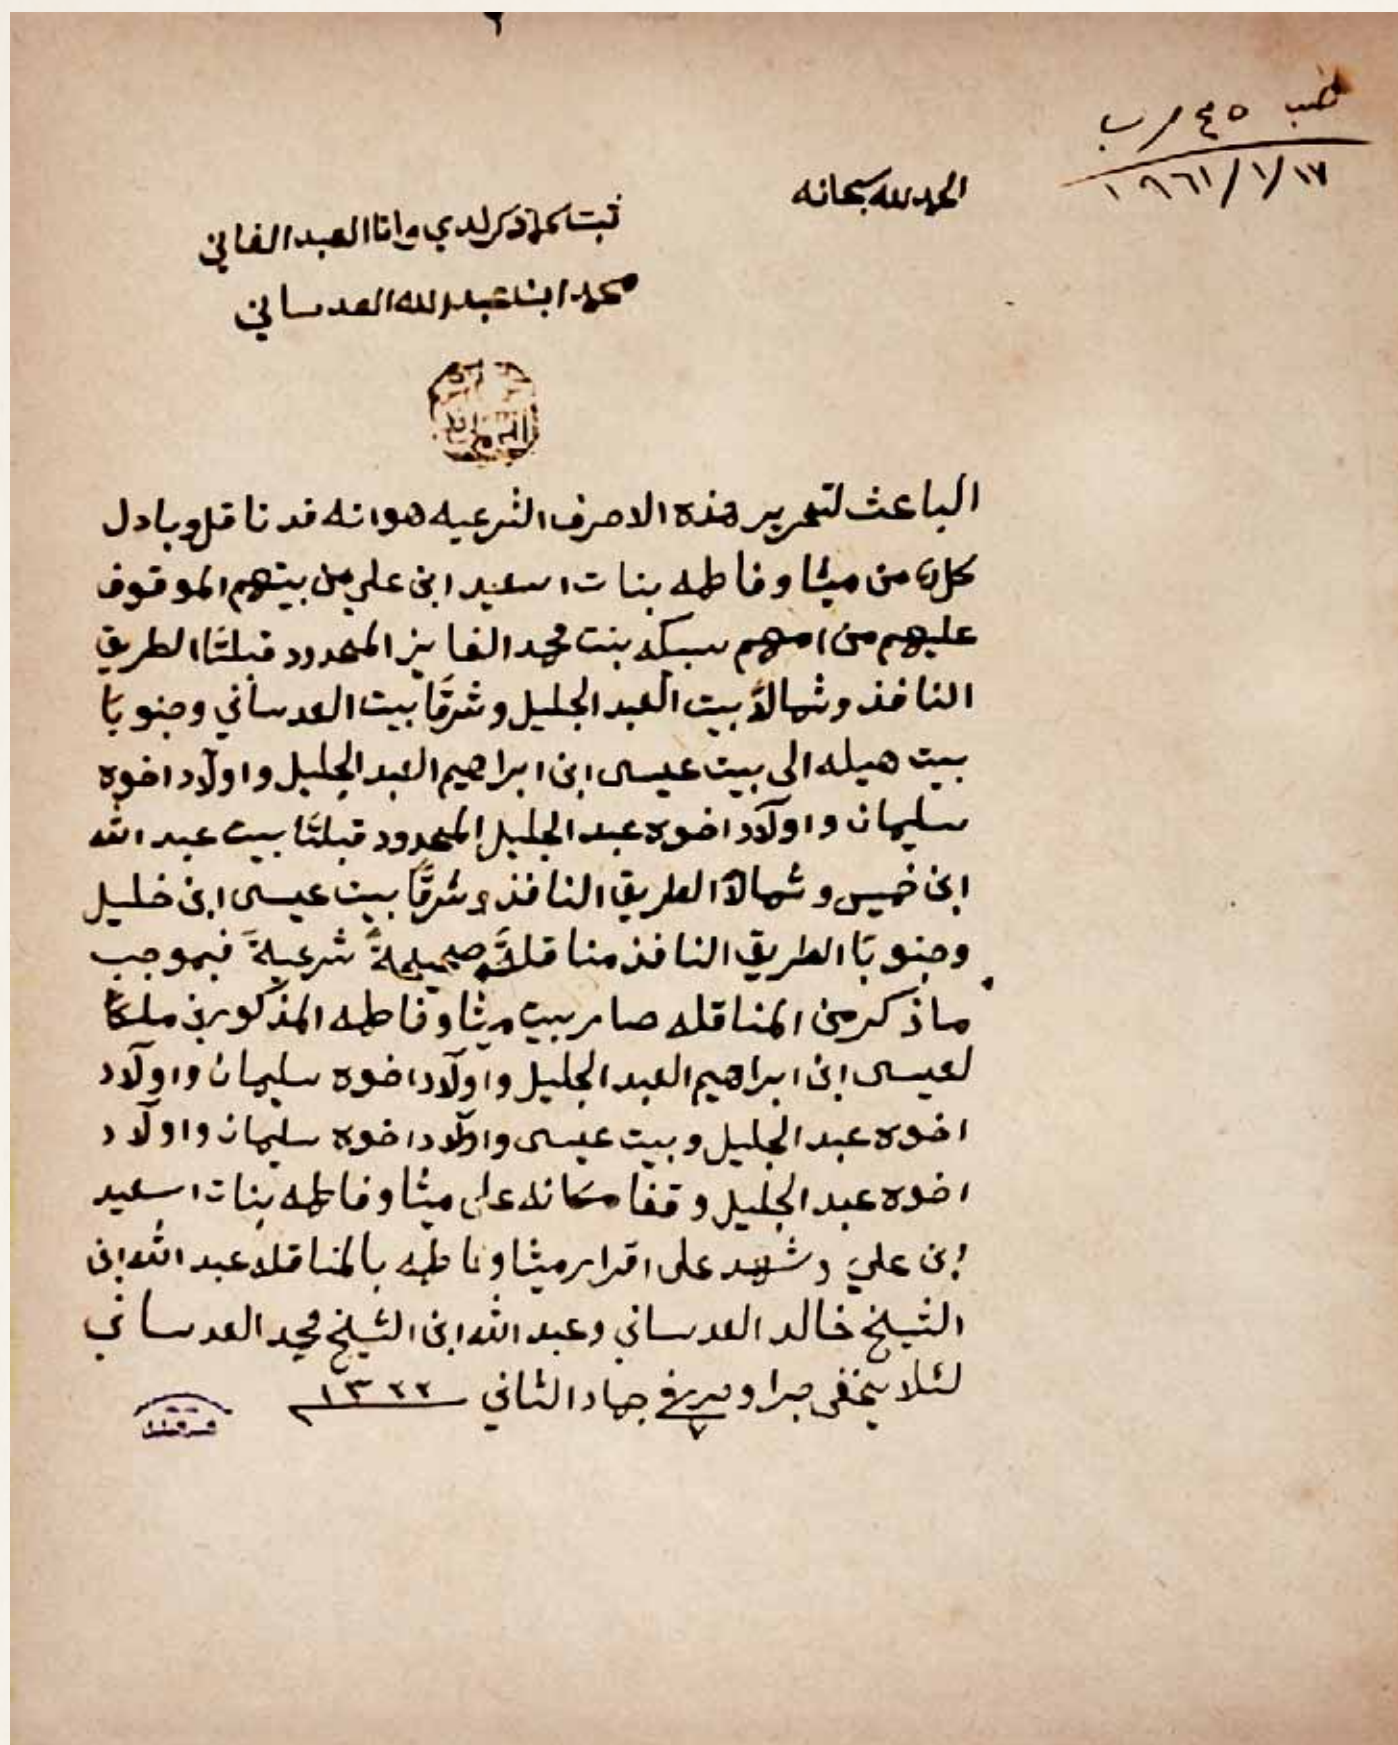 ١٩٦١/١/١٧
الحمد لله سبحانه
ثبت كما ذكر لدي وانا العبد الفاني
محمد ابن عبد الله العدساني
الباعث لتحرير هذه الاحرف الشرعيه هو انه قد ناقل وبادل
كلا من ميثا وفاطمه بنات اسعيد ابن علي من بيتهم الموقوف
عليهم من امهم سبيكه بنت محمد الفايز المحدود قبلتا الطريق
النافذ وشمالاً بيت العبد الجليل وشرقاً بيت العدساني وجنوباً
بيت هيله الى بيت عيسى ابن ابراهيم العبد الجليل واولاد اخوه
سليمان واولاد اخوه عبد الجليل المحدود قبلتاً بيت عبد الله
ابن خميس وشمالاً الطريق النافذ وشرقاً بيت عيسى ابن خليل
وجنوباً الطريق النافذ مناقلةً صحيحةً شرعيةً فبموجب
ما ذكر من المناقله صار بيت ميثا وفاطمه المذكورين ملكاً
لعيسى ابن ابراهيم العبد الجليل واولاد اخوه سليمان واولاد
اخوه عبد الجليل وبيت عيسى واولاد اخوه سليمان واولاد
اخوه عبد الجليل وقفا مكانه على ميثا وفاطمه بنات اسعيد
ابن علي وشهد على اقرار ميثا وفاطمه بالمناقله عبد الله ابن
الشيخ خالد العدساني وعبد الله ابن الشيخ محمد العدساني
لئلا يخفى جرا وحرر في ٧ جماد الثاني ١٣٢٢